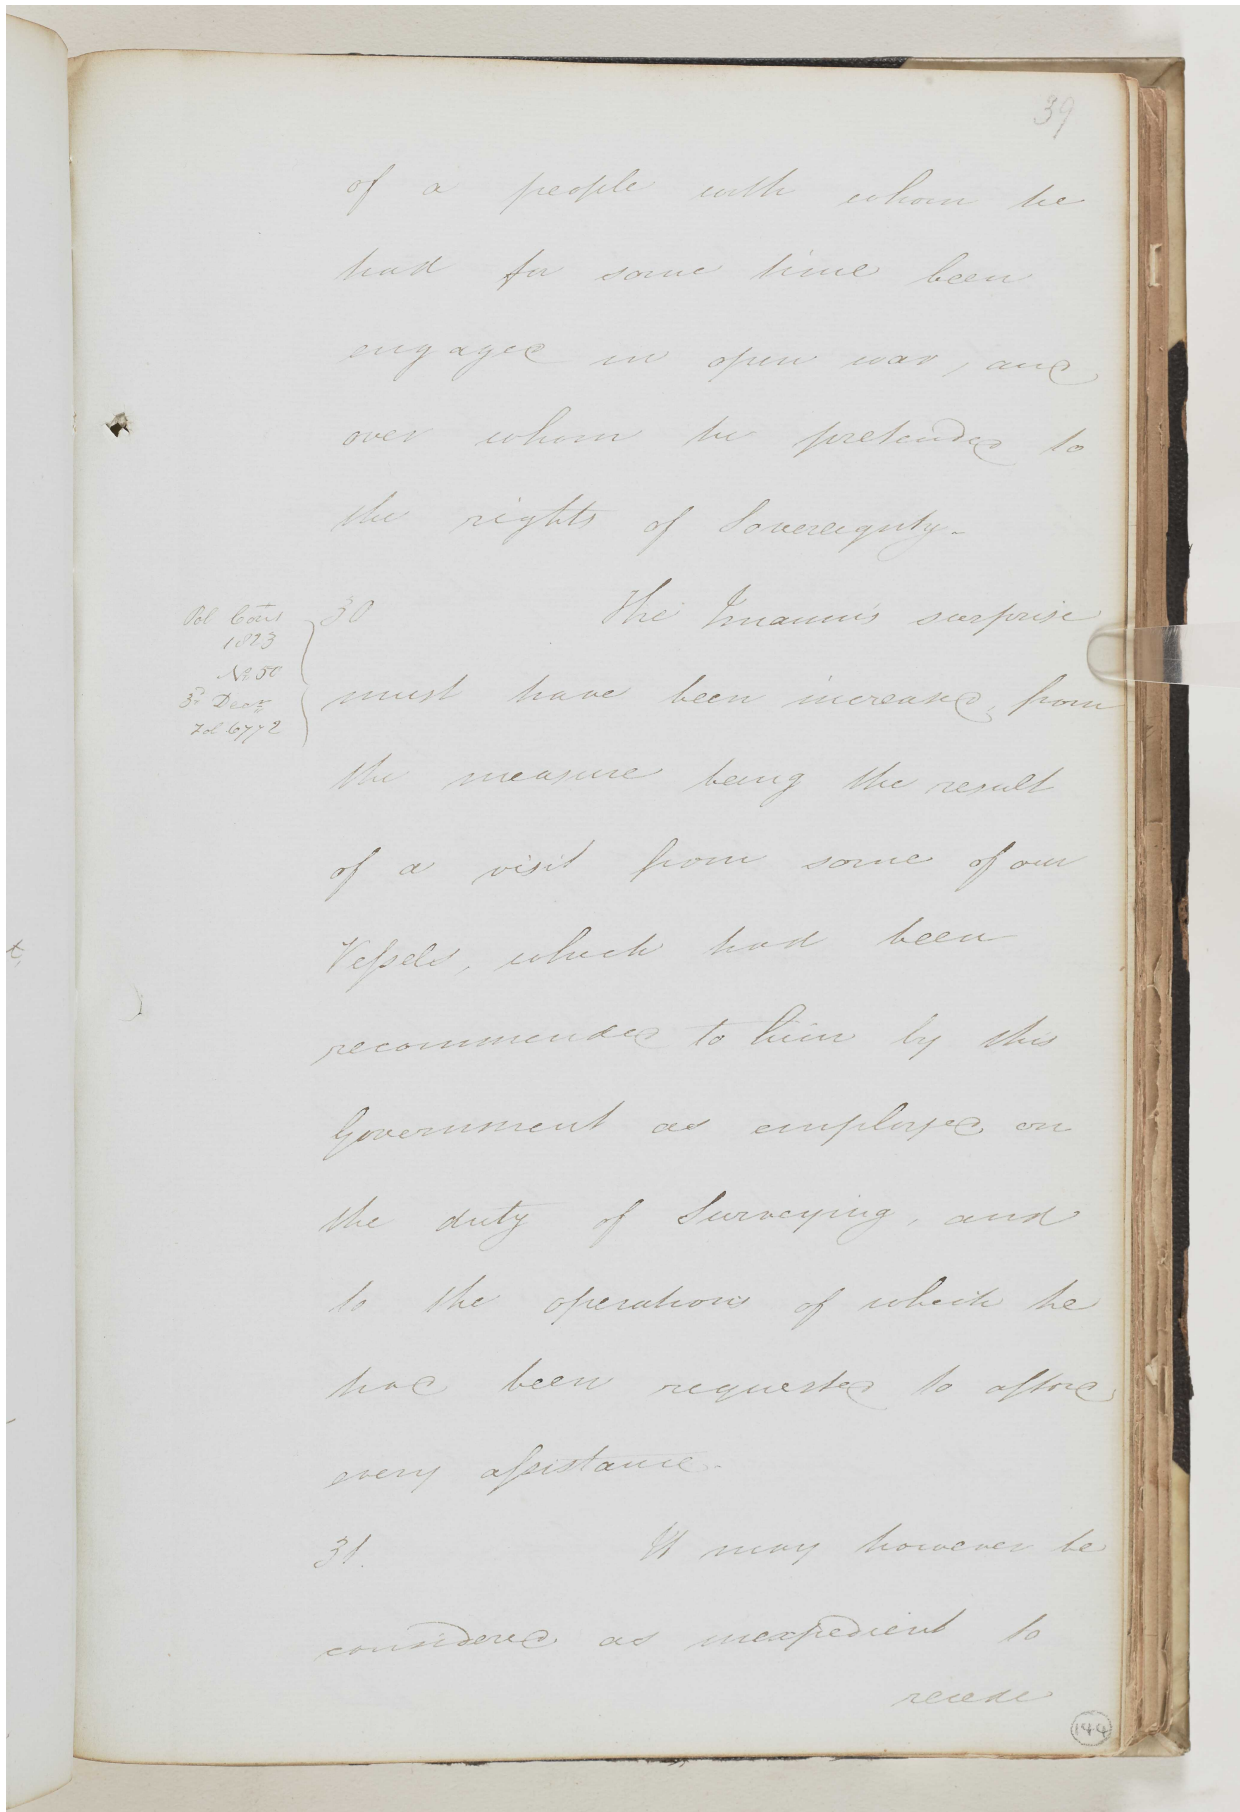 39
of a people with whom he
had for some time been
engaged in open war, and
over whom he pretended to
the rights of Sovereignty.
Pol Cons
1823
No 50
3d Decr
Fol 6772
30 The Imaum's surprise
must have been increased, from
the measure being the result
of a visit from some of our
Vessels, which had been
recommended to him by this
Government as employed on
the duty of Surveying, and
to the operations of which he
had been requested to afford
every assistance.
31. It may however be
considered as inexpedient to
recede
144